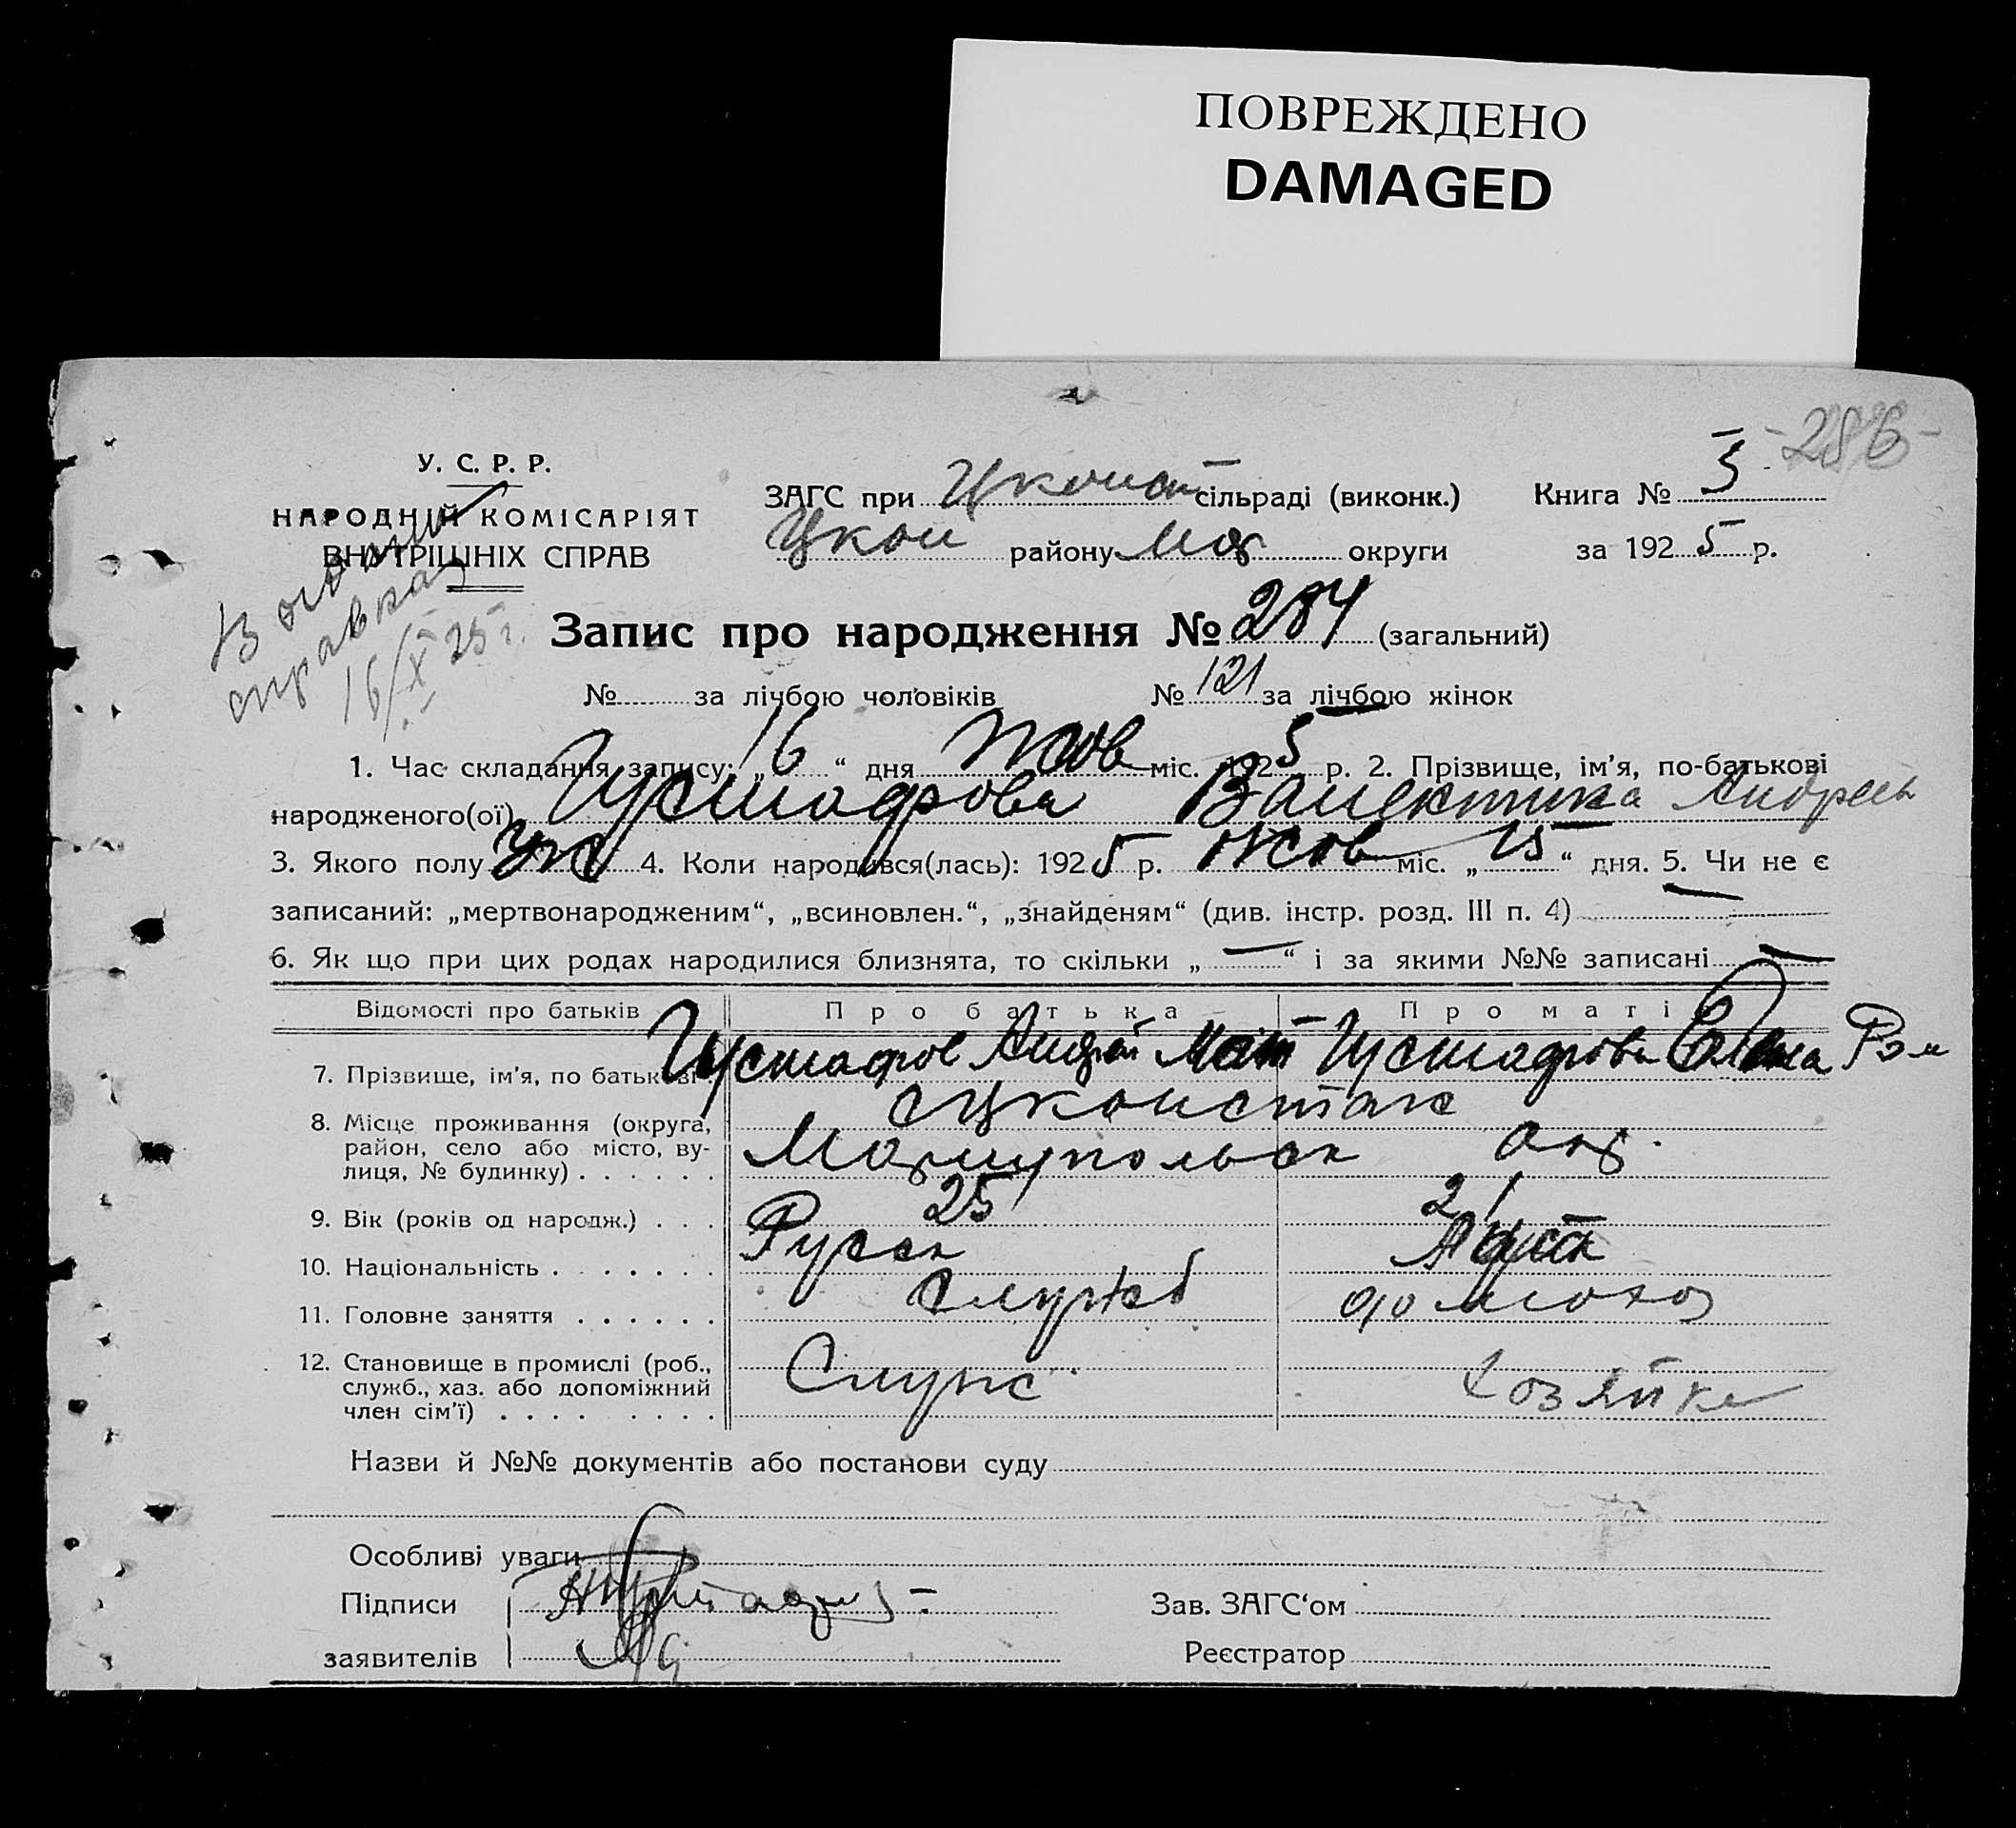 ПОВРЕЖДЕНО
DAMAGED
-286-
У. С. Р. Р.
НАРОДНІЙ КОМІСАРІЯТ
ВНУТРІШНІХ СПРАВ
ЗАГС при Цконст сільраді (виконк.) Книга № 3
Цкон району Мар округи за 1925 р.
справка
16/X 25 г.
Запис про народження № 284 (загальний)
№ за лічбою чоловіків № 121 за лічбою жінок
1. Час складання запису: „16“ дня Жов міс. 1925 р. 2. Прізвище, ім’я, по-батькові
народженого(ої) Валентина Андреев
3. Якого полу Уж 4. Коли народився(лась): 1925 р. Жов міс. „15“ дня. 5. Чи не є
записаний: „мертвонародженим“, „всиновлен.“, „знайденям“ (див. інстр. розд. III п. 4) —
6. Як що при цих родах народилися близнята, то скільки „—“ і за якими №№ записані —
Відомості про батьків Про батька Про матір
7. Прізвище, ім’я, по батькові Андрей Ром
8. Місце проживання (округа, район, село або місто, вулиця, № будинку) . . . . . . Мариупольск окр.
9. Вік (років од народж.) . . . 25 21
10. Національність . . . . . . . Русск
11. Головне заняття . . . . . . Служб домохоз
12. Становище в промислі (роб., служб., хаз. або допоміжний член сім’ї) . . . . . . . . Служ хозяйка
Назви й №№ документів або постанови суду
Особливі уваги
Підписи Зав. ЗАГС‘ом
заявителів Реєстратор